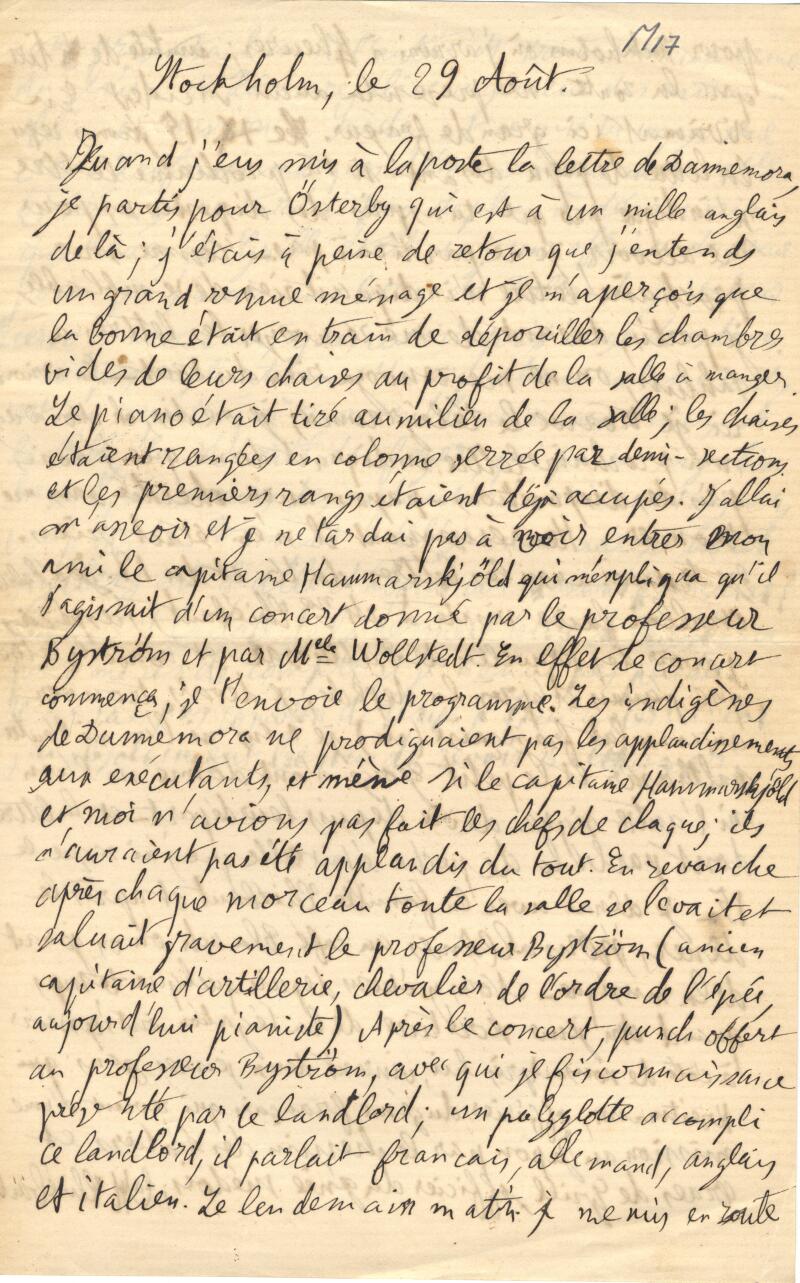 M17
Stockholm, le 29 Août.
Quand j'eus mis à la poste la lettre de Dannemora,
je partis pour Österby qui est à un mille anglais
de là ; j'étais à peine de retour que j'entends
un grand remue ménage et je m'aperçois que
la bonne était en train de dépouiller les chambres
vides de leurs chaises au profit de la salle à manger.
Le piano était tiré au milieu de la salle ; les chaises
étaient rangées en colonne serrée par demi-sections
et les premiers rangs étaient déjà occupés. J'allai
m'asseoir et je ne tardai pas à voir entrer mon
ami le capitaine Hammarskjöld qui m'expliqua qu'il
s'agissait d'un concert donné par le professeur
Byström et par Melle Wollstedt. En effet le concert
commença ; je t'envoie le programme. Les indigènes
de Dannemora ne prodiguaient pas les applaudissements
aux exécutants, et même si le capitaine Hammarskjöld
et moi n'avions pas fait les chefs de claque ; ils
n'auraient pas été applaudis du tout. En revanche
après chaque morceau toute la salle se levait et
saluait gravement le professeur Byström (ancien
capitaine d'artillerie, chevalier de l'ordre de l'épée,
aujourd'hui pianiste) Après le concert, punch offert
au professeur Byström, avec qui je fis connaissance
présenté par le landlord ; un polyglotte accompli
ce landlord, il parlait francais, allemand, anglais
et italien. Le lendemain matin je me mis en route